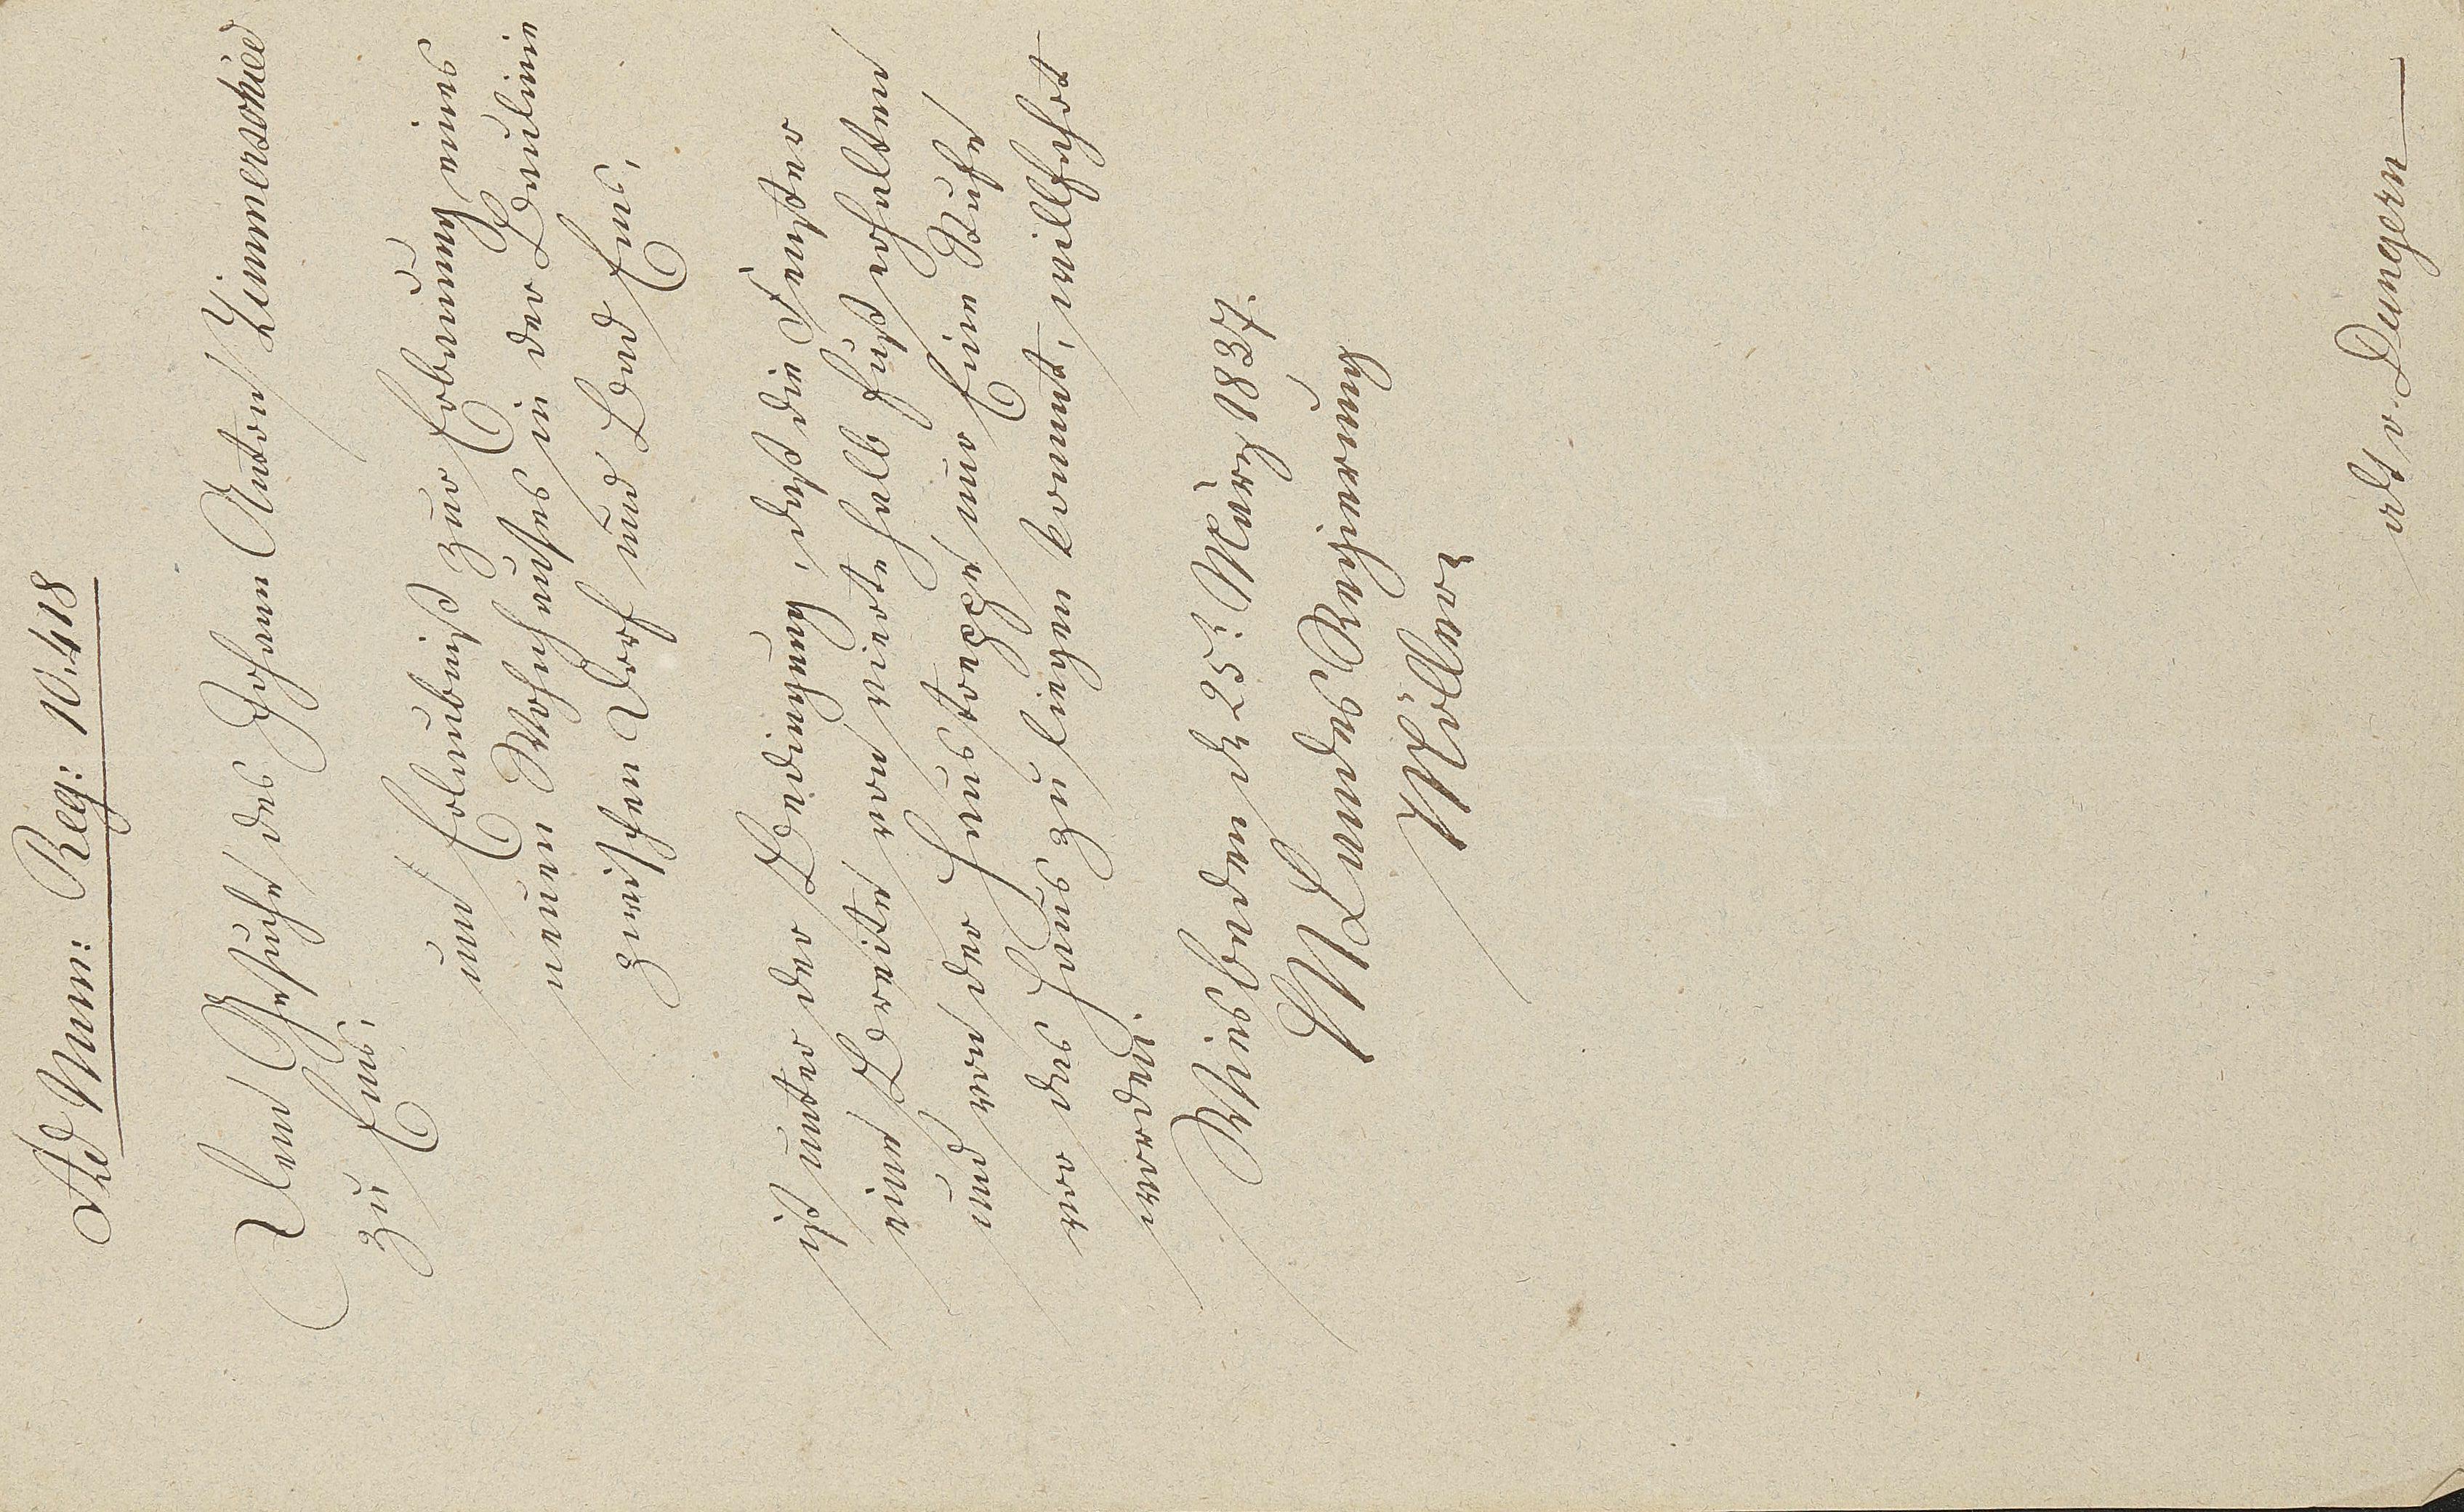 Ad Num: Reg: 10.418
Dem Gesuche des Johann Anton Zimmerschied
zu Ems,
um Erlaubniß zur Erbauung eines
neuen Wohnhauses in der Baulinie
zwischen Dorf und Bad Ems,
ist unter der Bedingung, daß die Fenster
eine Breite von vierthalb Fuß erhalten
und von der Haustreppe nur Eine Stufe
vor das Haus zu liegen kommt, willfahrt
worden.
Wiesbaden dn 25n März 1837.
HN Landes Regierung
Möller
vdt v. Dungern